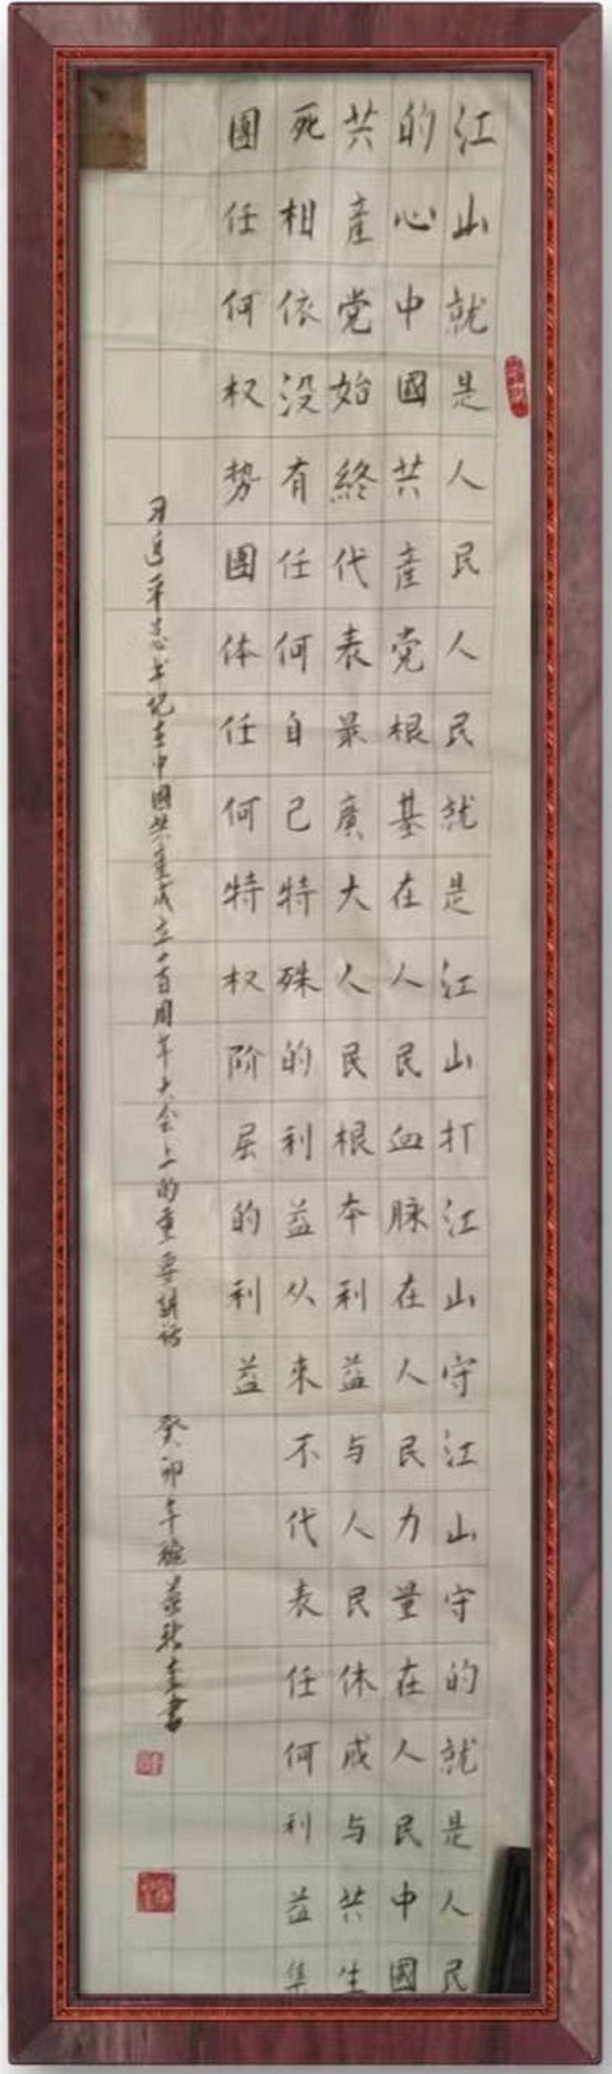 江山就是人民人民就是江山打江山守江山守的就是人民
的心中國共產党根基在人民血脉在人民力量在人民中國
共產党始終代表最廣大人民根本利益与人民休戚与共生
死相依没有任何自己特殊的利益从来不代表任何利益集
團任何权势團体任何特权阶层的利益
习近平总书记在中國共產成立一百周年大会上的重要讲话 癸卯年